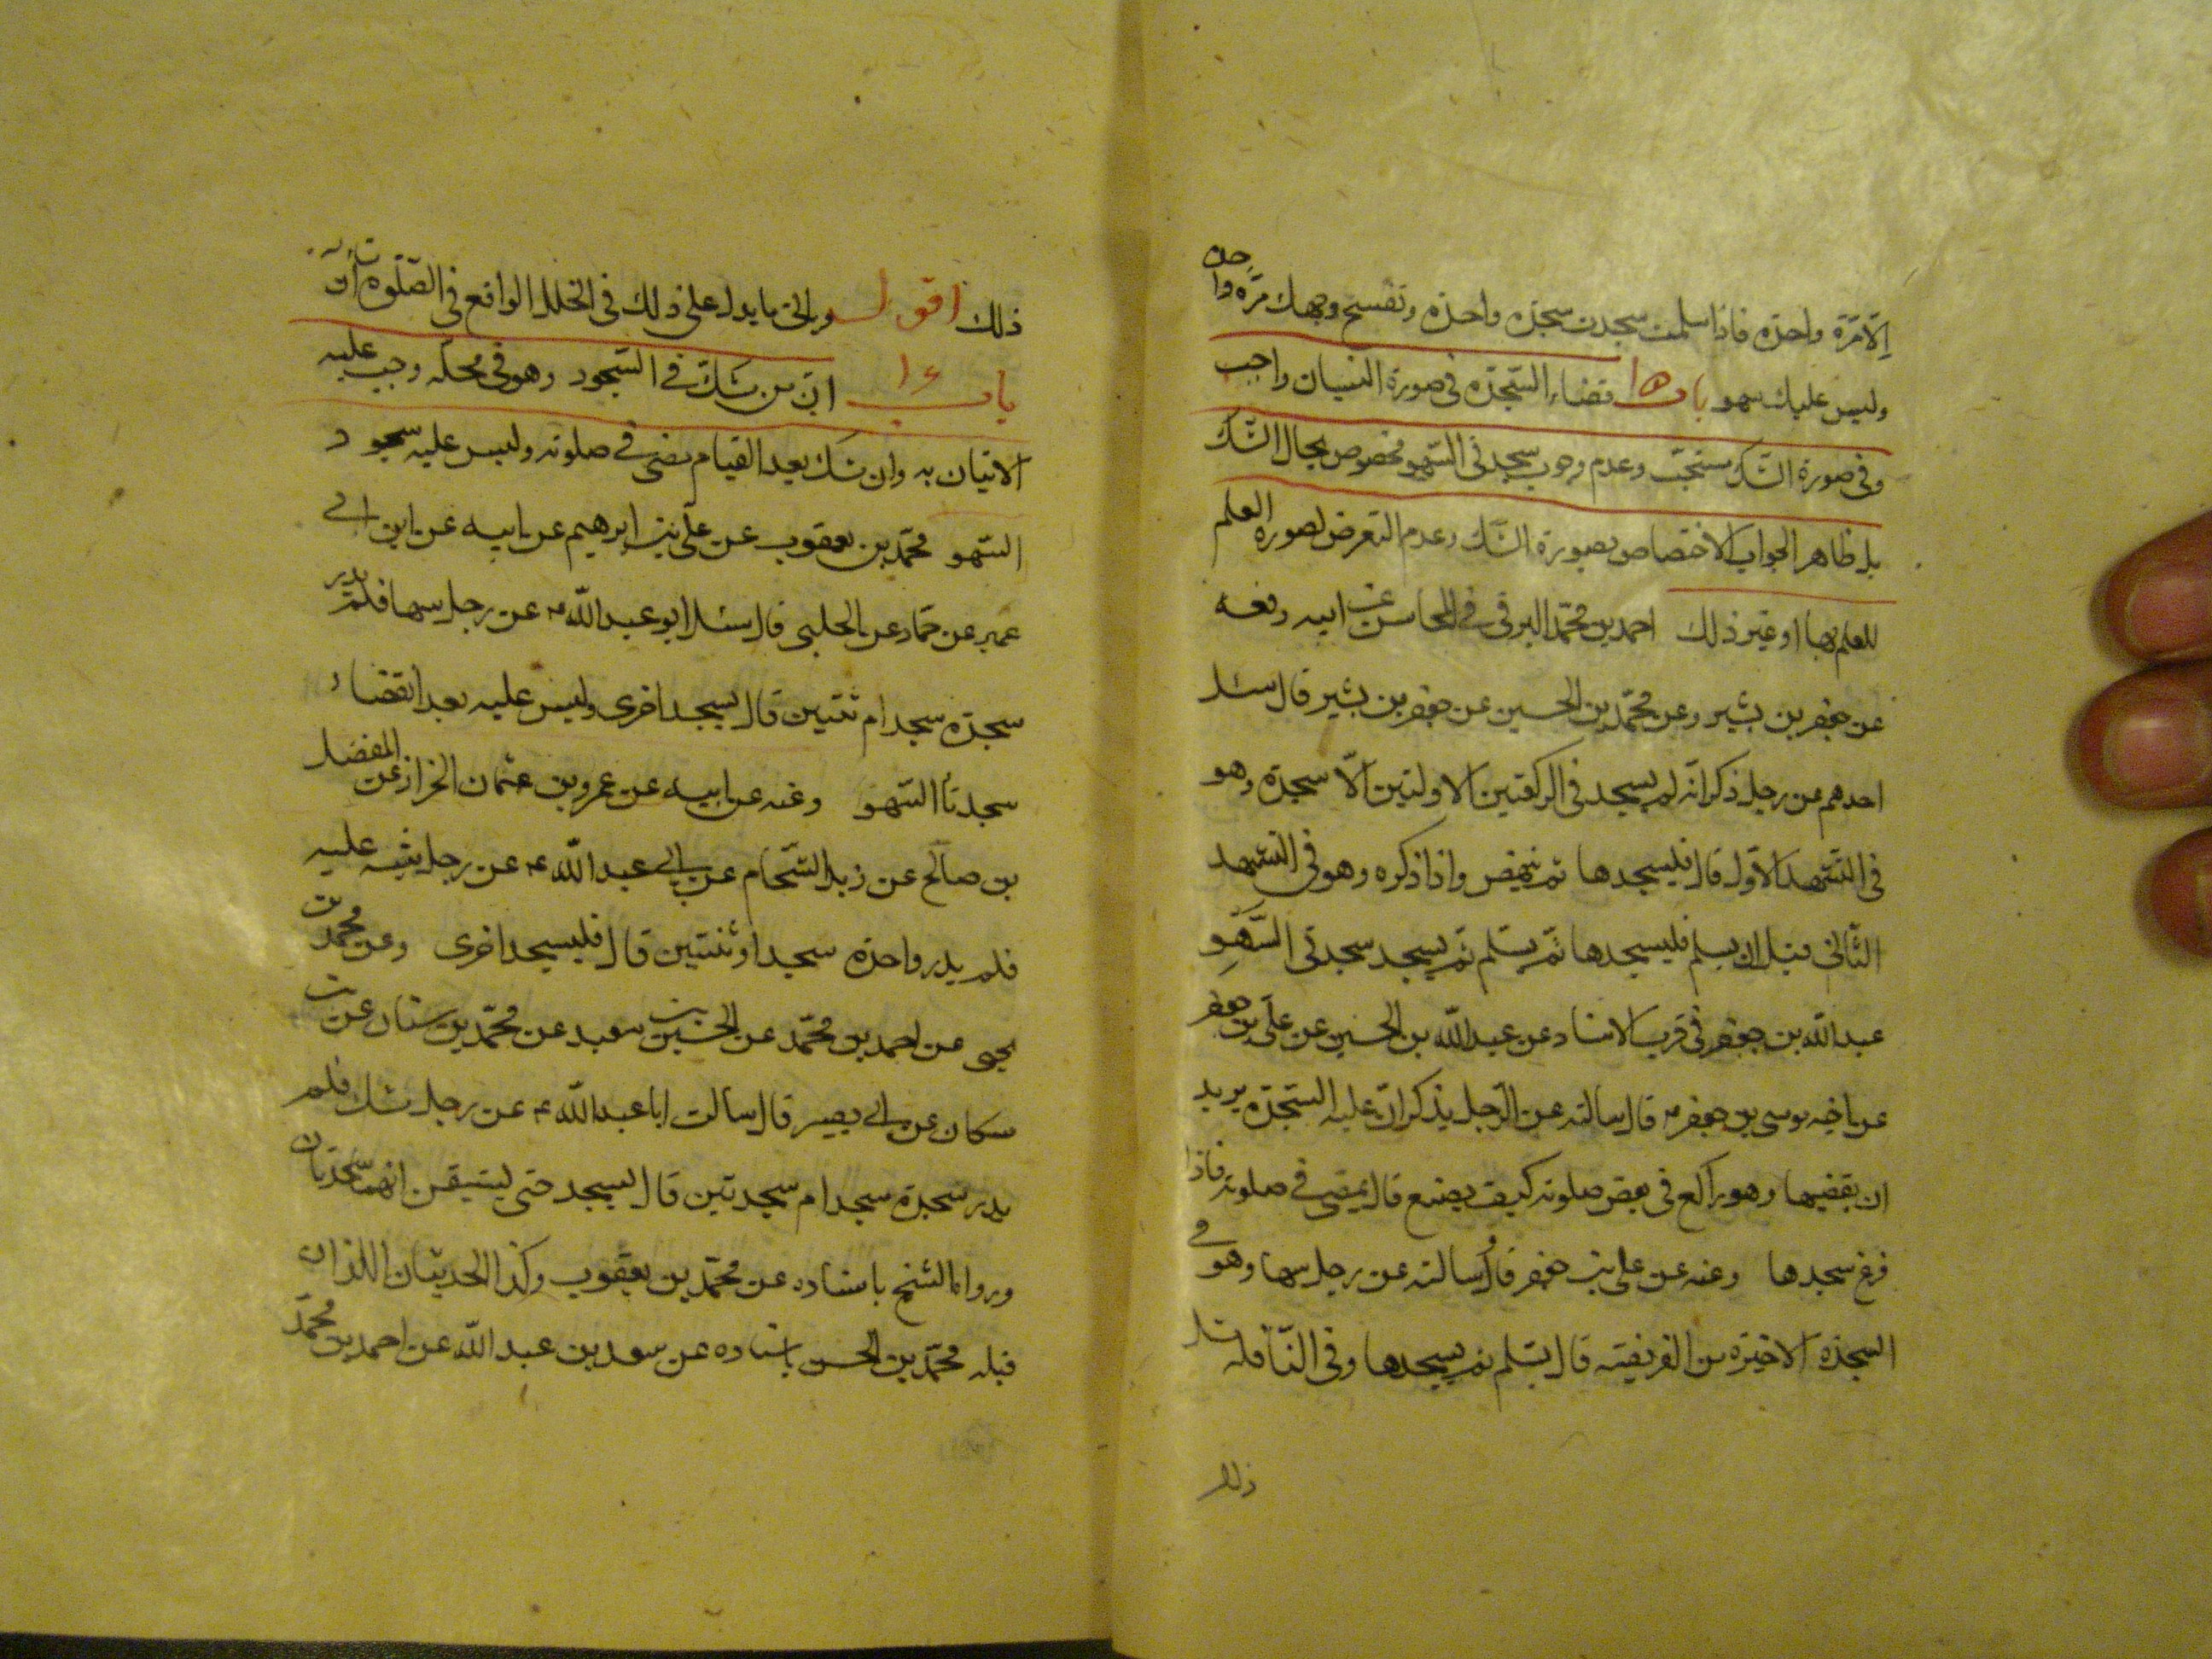 الّا مرّة واحدة فاذا سلمت سجدت سجدة واحدة وتمسح وجهك مرّة واحدة
وليس عليك سهو باب ١٥ قضاء السّجدة فى صورة النسيان واجب
وفى صورة الشّك مستحبّ وعدم وجوب سجدتى السّهو مخصوص بحال الشّك
بل ظاهر الجواب الاختصاص بصورة الشّك وعدم التعرض لصورة العلم
للعلم بها او غير ذلك احمد بن محمّد البرقى فى المحاسن عن ابيه رفعه
عن جعفر بن بشير وعن محمّد بن الحسين عن جعفر بن بشير قال سئل
احدهم من رجل ذكر انّه لم يسجد فى الركعتين الاولتين الّا سجدة وهو
فى التّشهد الاوّل قال فليسجدها ثم ينهض واذا ذكره وهو فى التشهد
الثّانى قبل ان يسلم فليسجدها ثمّ يسلم ثمّ يسجد سجدتى السّهو
عبد اللّه بن جعفر فى قرب الاسناد عن عبد اللّه بن الحسين عن علّى بن جعفر
عن اخيه موسى بن جعفر ع قال سالته عن الرّجل يذكر انّ عليه السّجدة يريد
ان يقضيها وهو راكع فى بعض صلوته كيف يصنع قال يمضى فى صلوته فاذا
فرغ سجدها وعنه عن على بن جعفر قال وسالته عن رجل سها وهو فى
السجدة الاخيرة من الفريضة قال يسلم ثم يسجدها وفى النّافلة مثل
ذلك
ذلك اقول وياتى ما يدل على ذلك فى الخلل الواقع فى الصّلوة
باب ١٤ انّ من شكّ فى السّجود وهو فى محلّه وجب عليه
الاتيان به وان شك بعد القيام مضى فى صلوته وليس عليه سجود
السّهو محمّد بن يعقوب عن علّى بن ابرهيم عن ابيه عن ابن ابى
عمير عن حمّاد عن الحلبى قال سئل ابو عبد اللّه ع عن رجل سها فلم يدر
سجدة سجد ام ثنتين قال يسجد اخرى وليس عليه بعد انقضاء
سجدتا السّهو وعنه عن ابيه عن عمرو بن عثمان الخراز عن المفضل
بن صالح عن زيد الشّحام عن ابى عبد اللّه ع عن رجل شبه عليه
فلم يدر واحدة سجد او ثنتين قال فليسجد اخرى وعن محمّد بن
يحيى عن احمد بن محمّد عن الحسين بن سعيد عن محمّد بن سنان عن بن
مسكان عن ابى بصير قال سالت ابا عبد اللّه ع عن رجل شك فلم
يدر سجدة سجد ام سجدتين قال يسجد حتى يستيقن انهما سجدتان
ورواه الشيخ باسناده عن محمّد بن يعقوب وكذا الحديثان اللذان
قبله محمّد بن الحسن باسناده عن سعد بن عبد اللّه عن احمد بن محمّد